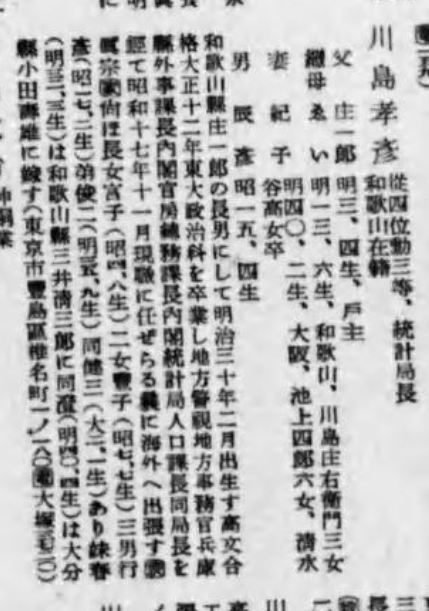 川島孝彦
從四位勳三等、統計局長
和歌山在籍
父 庄一郎 明三、四生、戸主
繼母 ゑい 明一三、六生、和歌山、川島庄右衞門三女
妻 紀子 明四〇、二生、大阪、池上四郎六女、清水谷高女卒
男 辰彥 昭一五、四生
和歌山縣庄一郎の長男にして明治三十年二月出生す高文合
格大正十二年東大政治科を卒業し地方警視地方事務官兵庫
縣外事課長內閣官房總務課長內閣統計局人口課長同局長を
經て昭和十七年十一月現職に任ぜらる曩に海外へ出張す
眞宗 尙ほ長女宮子(昭四、八生)二女豐子(昭七、七生)三男行
彥(昭一七、二生)弟俊二(明 、九生)同健三(大二、一生)あり妹春
(明三二、三生)は和歌山縣三井淸三郞に同澄(明四〇、四生)は大分
縣小田壽雄に嫁す(東京市豐島區椎名町一ノ一八〇 大塚 )